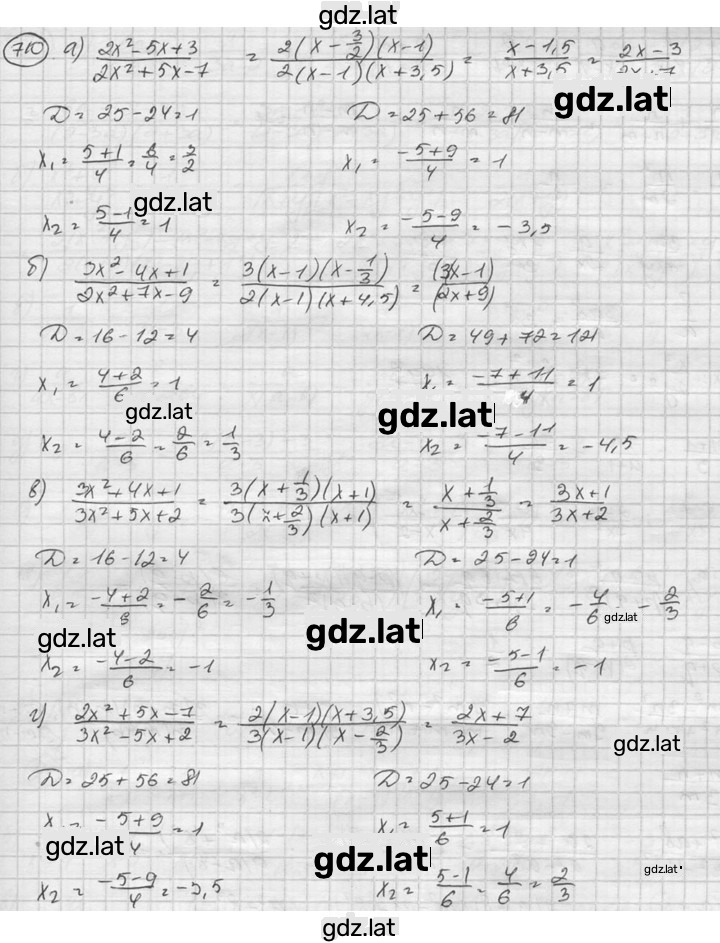 gdz.lat
710 а) (2x² - 5x + 3)/(2x² + 5x - 7) = 2(x - 3/2)(x - 1)/2(x - 1)(x + 3,5) = (x - 1,5)/(x + 3,5) = (2x - 3)/(2x + 7)
gdz.lat
D = 25 - 24 = 1 D = 25 + 56 = 81
x₁ = (5 + 1)/4 = 6/4 = 3/2 x₁ = (-5 + 9)/4 = 1
gdz.lat
x₂ = (5 - 1)/4 = 1 x₂ = (-5 - 9)/4 = -3,5
б) (3x² - 4x + 1)/(2x² + 7x - 9) = 3(x - 1)(x - 1/3)/2(x - 1)(x + 4,5) = (3x - 1)/(2x + 9)
D = 16 - 12 = 4 D = 49 + 72 = 121
x₁ = (4 + 2)/6 = 1 x₁ = (-7 + 11)/4 = 1
gdz.lat gdz.lat
x₂ = (4 - 2)/6 = 2/6 = 1/3 x₂ = (-7 - 11)/4 = -4,5
в) (3x² + 4x + 1)/(3x² + 5x + 2) = 3(x + 1/3)(x + 1)/3(x + 2/3)(x + 1) = (x + 1/3)/(x + 2/3) = (3x + 1)/(3x + 2)
D = 16 - 12 = 4 D = 25 - 24 = 1
x₁ = (-4 + 2)/6 = -2/6 = -1/3 x₁ = (-5 + 1)/6 = -4/6 = -2/3
gdz.lat gdz.lat gdz.lat
x₂ = (-4 - 2)/6 = -1 x₂ = (-5 - 1)/6 = -1
г) (2x² + 5x - 7)/(3x² - 5x + 2) = 2(x - 1)(x + 3,5)/3(x - 1)(x - 2/3) = (2x + 7)/(3x - 2)
gdz.lat
D = 25 + 56 = 81 D = 25 - 24 = 1
x₁ = (-5 + 9)/4 = 1 x₁ = (5 + 1)/6 = 1
gdz.lat gdz.lat gdz.lat
x₂ = (-5 - 9)/4 = -3,5 x₂ = (5 - 1)/6 = 4/6 = 2/3
gdz.lat